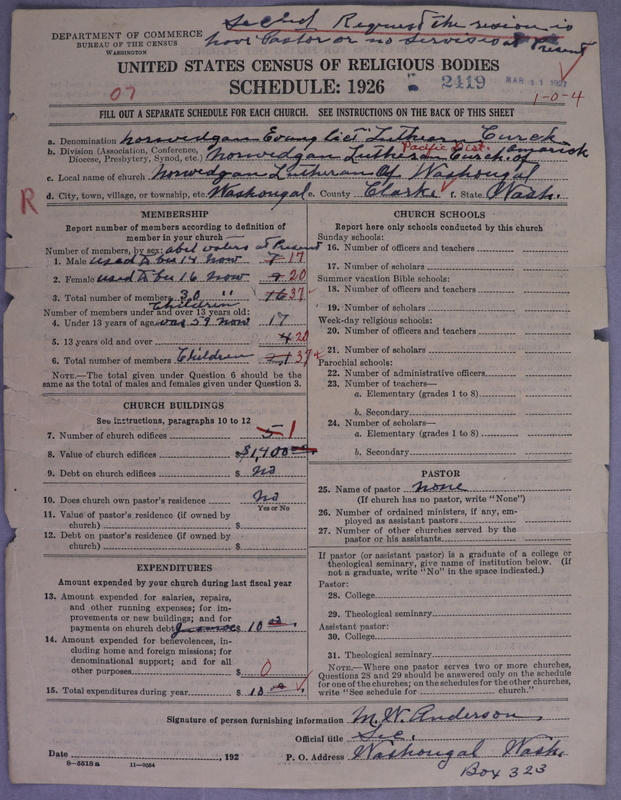 Second Request the reason is
have Pastor or no Services at Present
DEPARTMENT OF COMMERCE
BUREAU OF THE CENSUS
WASHINGTON
UNITED STATES CENSUS OF RELIGIOUS BODIES
SCHEDULE: 1926
2419
MAR 11 1927
07
1-0-4
FILL OUT A SEPARATE SCHEDULE FOR EACH CHURCH. SEE INSTRUCTIONS ON THE BACK OF THIS SHEET
a. Denomination Norwedgan Evanglict Luthearn Curck
b. Division (Association, Conference, Diocese, Presbytery, Synod, etc.) Norwedgan Lutheran Curch of
Pacific Dist.
c. Local name of church Norwedgan Lutheran of Washougal
d. City, town, village, or township, etc. Washougal e. County Clarke f. State Wash.
R
MEMBERSHIP
Report number of members according to definition of member in your church
Number of members, by sex: abel voters at Present
1. Male used to bee 14 now 7 17
2. Female used to bee 16 now 9 20
3. Total number of members 30 " 16 37
Children
Number of members under and over 13 years old:
4. Under 13 years of age was 59 now 17
5. 13 years old and over 4 20
6. Total number of members Children 21 37
NOTE.—The total given under Question 6 should be same as the total of males and females given under Question 3.
CHURCH BUILDINGS
See instructions, paragraphs 10 to 12
7. Number of church edifices 1
8. Value of church edifices $1,400
9. Debt on church edifices $ no
10. Does church own pastor's residence no
Yes or No
11. Value of pastor's residence (if owned by church) $
12. Debt on pastor's residence (if owned by church) $
EXPENDITURES
Amount expended by your church during last fiscal year
13. Amount expended for salaries, repairs, and other running expenses; for improvements or new buildings; and for payments on church debt $ 10 00
14. Amount expended for benevolences, including home and foreign missions; for denominational support; and for all other purposes $ 0
15. Total expenditures during year $ 10 00
CHURCH SCHOOLS
Report here only schools conducted by this church
Sunday schools:
16. Number of officers and teachers
17. Number of scholars
Summer vacation Bible schools:
18. Number of officers and teachers
19. Number of scholars
Week-day religious schools:
20. Number of officers and teachers
21. Number of scholars
Parochial schools:
22. Number of administrative officers
23. Number of teachers—
a. Elementary (grades 1 to 8)
b. Secondary
24. Number of scholars—
a. Elementary (grades 1 to 8)
b. Secondary
PASTOR
25. Name of pastor None
(If church has no pastor, write "None")
26. Number of ordained ministers, if any, employed as assistant pastors
27. Number of other churches served by the pastor or his assistants
If pastor (or assistant pastor) is a graduate of a college or theological seminary, give name of institution below. (If not a graduate, write "No" in the space indicated.)
Pastor:
28. College
29. Theological seminary
Assistant pastor:
30. College
31. Theological seminary
NOTE.—Where one pastor serves two or more churches, Questions 28 and 29 should be answered only on the schedule for one of the churches; on the schedules for the other churches, write "See schedule for church."
Signature of person furnishing information M. W. Anderson
Official title Sec.
Date , 192
P. O. Address Washougal Wash.
Box 323
8-5518a 11-9054